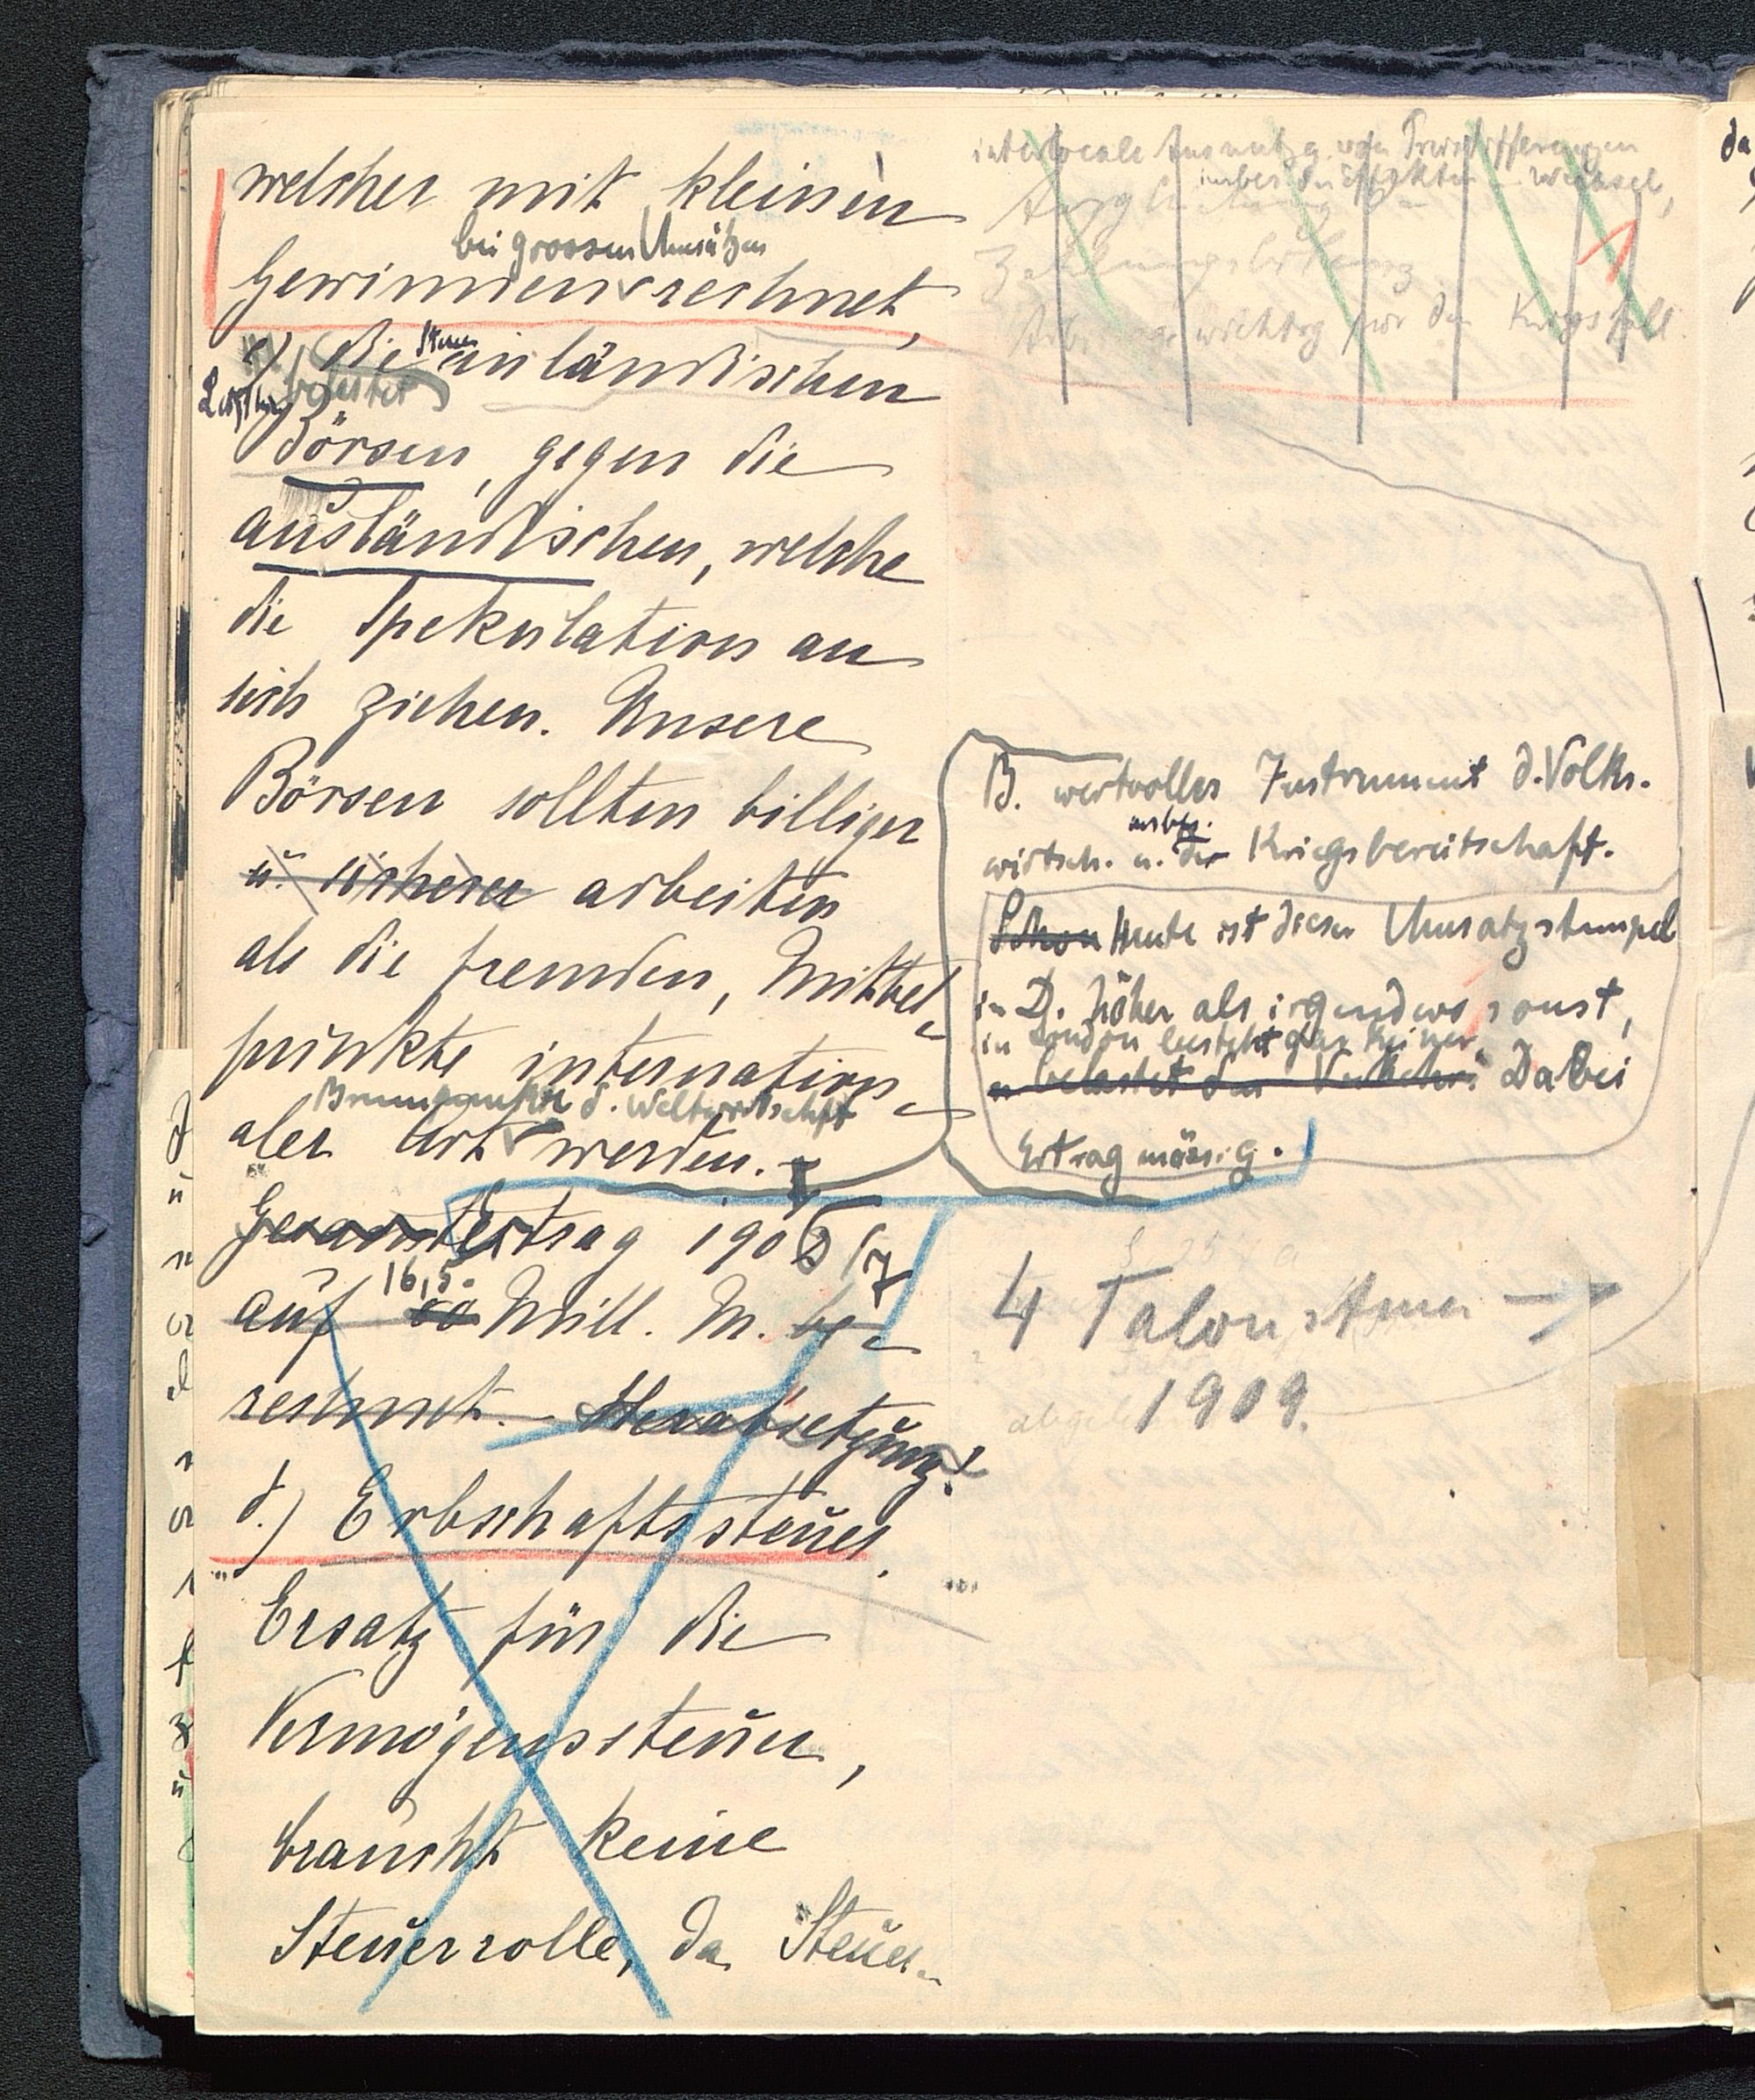 welcher mit kleinen
bei grossen Umsätzen
Gewinnen rechnet,
c) die Steuer inländischen
belastet
Börsen, gegen die
ausländischen, welche
die Spekulation an
sich ziehen. Unsere
Börsen sollten billiger
u. sicherer arbeiten
als die fremden, Mittel-
punkte internation-
Brennpunkte d. Weltwirtschaft
aler Art werden.
Gesamtertrag 1906/7
16,5
auf Mill. M. be-
rechnet. Herabsetzung!
d.) Erbschaftssteuer.
Ersatz für die
Vermögenssteuer,
braucht keine
Steuerrolle, da Steuer-
interlocale Ausnutzg. von Preisdifferenzen
insbes. in Effekten Wechsel,
Zahlungsbilanz
wichtig für den Kriegsfall.
B. wertvolles Instrument d. Volks-
insbes.
wirtsch. u. der Kriegsbereitschaft.
Schon Heute ist dieser Umsatzstempel
in D. höher als irgendwo sonst,
in London besteht gar keiner.
u. belastet den Verkehr. Dabei
Ertrag mässig.
4 Talonsteuer →
1909.